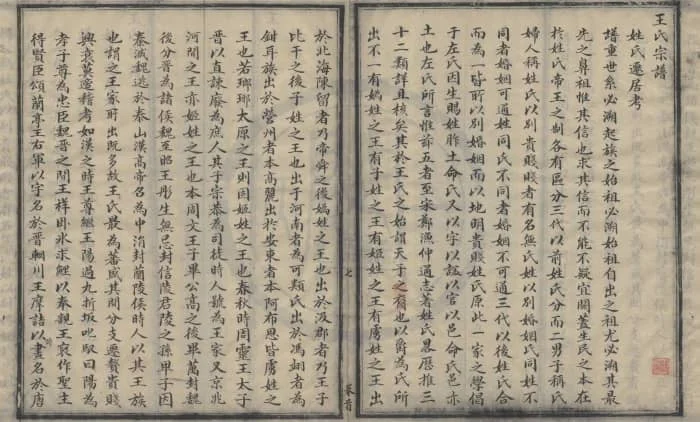 王氏宗譜
姓氏遷居考
增重世系必溯起族之始祖必溯始祖自出之祖尤必溯其最
先之鼻祖惟其信也求其信而不能不疑宜闕蓋生民之本在
於姓氏帝王之制各有區分三代以前姓氏分而二男子稱氏
婦人稱姓氏以別貴賤賤者有名無氏姓以別婚姻氏同姓不
同者婚姻可通姓同氏不同者婚姻不可通三代以後姓氏合
而為一皆所以別婚姻而以地明貴賤姓氏原此一家之學倡
于左氏因生賜姓胙土命氏又以字以謚以官以邑命氏邑亦
土也左氏所言惟茲五者至宋鄭漁仲通志著姓氏畧歷推三
十二類詳且核矣其於王氏之始謂天子之裔也以爵為氏所
出不一有媯姓之王有子姓之王有姬姓之王有虜姓之王出
於北海陳留者乃帝舜之後媯姓之王也出於汲郡者乃王子
比干之後子姓之王也出于河南者為可頻氏出於馮翊者為
鉗耳族出於營州者本高麗出於安東者本阿布思皆虜姓之
王也若瑯琊太原之王則因姬姓之王也春秋時周靈王太子
晉以直諫廢為庶人其子宗恭為司徒時人號為王家又京兆
河間之王亦姬姓之王也本周文王子畢公高之後畢萬封魏
後分晉為諸侯魏至昭王彤生無忌封信陵君陵之孫卑子因
秦滅魏逃於泰山漢高帝召為中涓封蘭陵侯時人以其王族
也謂之王家所出既多故王氏最為蕃盛其間分支遷徙貴賤
興衰莫遑稽考如漢之時王尊繼王陽過九折坂叱馭曰陽為
孝子尊為忠臣魏晉之間王祥卧氷求鯉以奉親王裒作聖主
得賢臣頌蘭亭王右軍以字名於晉輞川王摩詰以畫名於唐
七
卷首